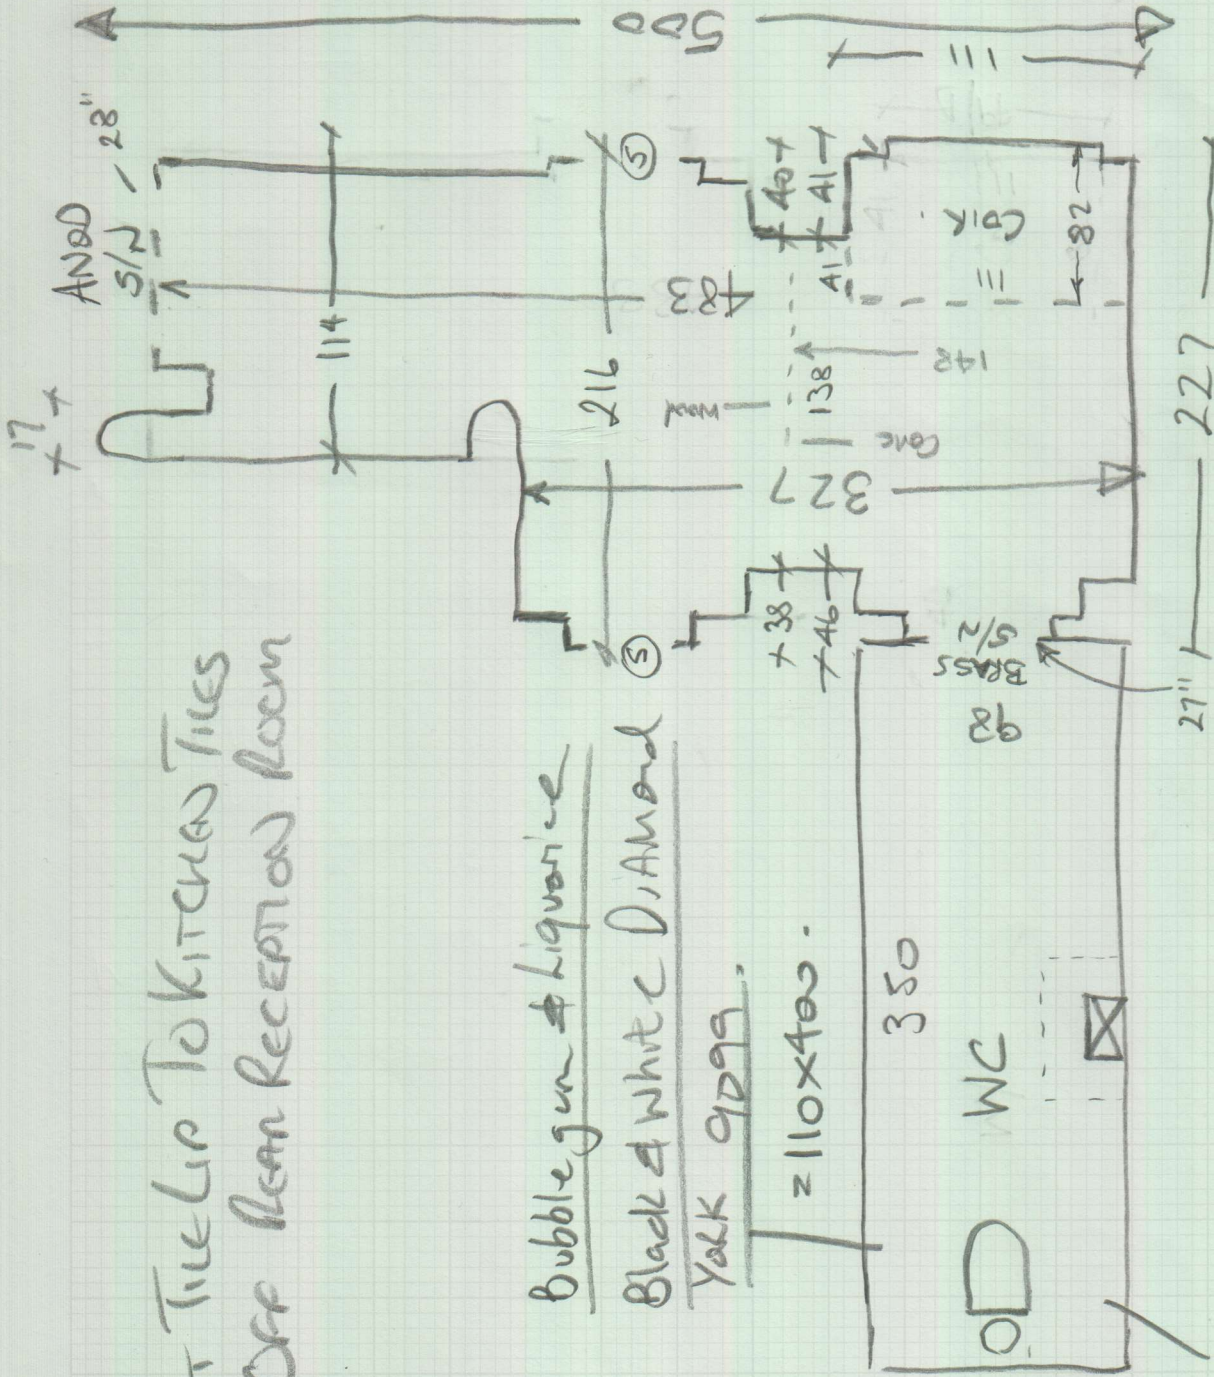 T TILE LIP TO KITCHEN TILES
OFF REAR RECEPTION ROOM
Bubblegum & Liquorice
Black & White DiAMond
YORK 9099.
= 110x400.
350
WC
17
ANOD
S/N
28"
114
216
5
5
500
111
483
40
41
41
138
142
wood
Conc
327
38
46
CPK
111
82
BRASS
S/2
92
27"
227